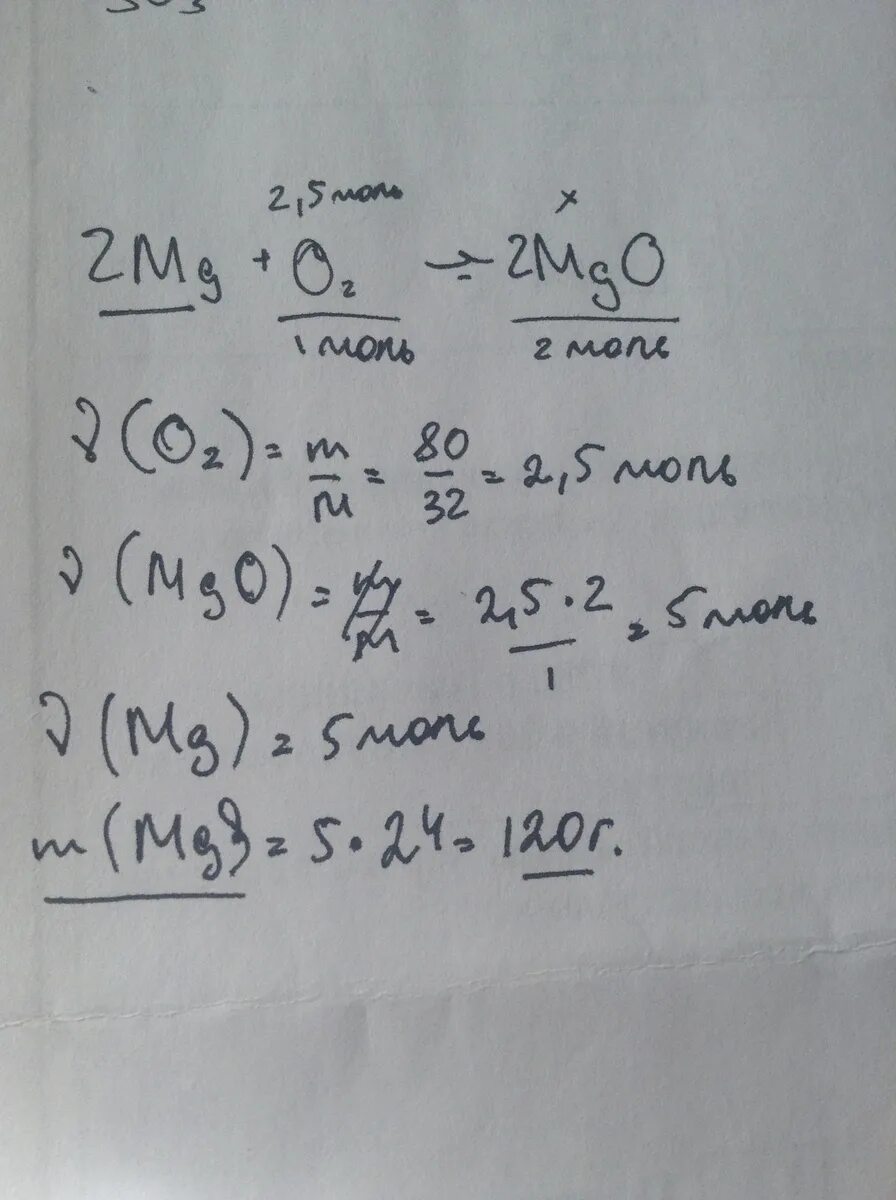 SO3
2,5 моль x
2Mg + O2 → 2MgO
1 моль 2 моль
ν(O2) = m/M = 80/32 = 2,5 моль
ν(MgO) = m/M = 2,5·2/1 = 5 моль
ν(Mg) = 5 моль
m(Mg) = 5·24 = 120г.